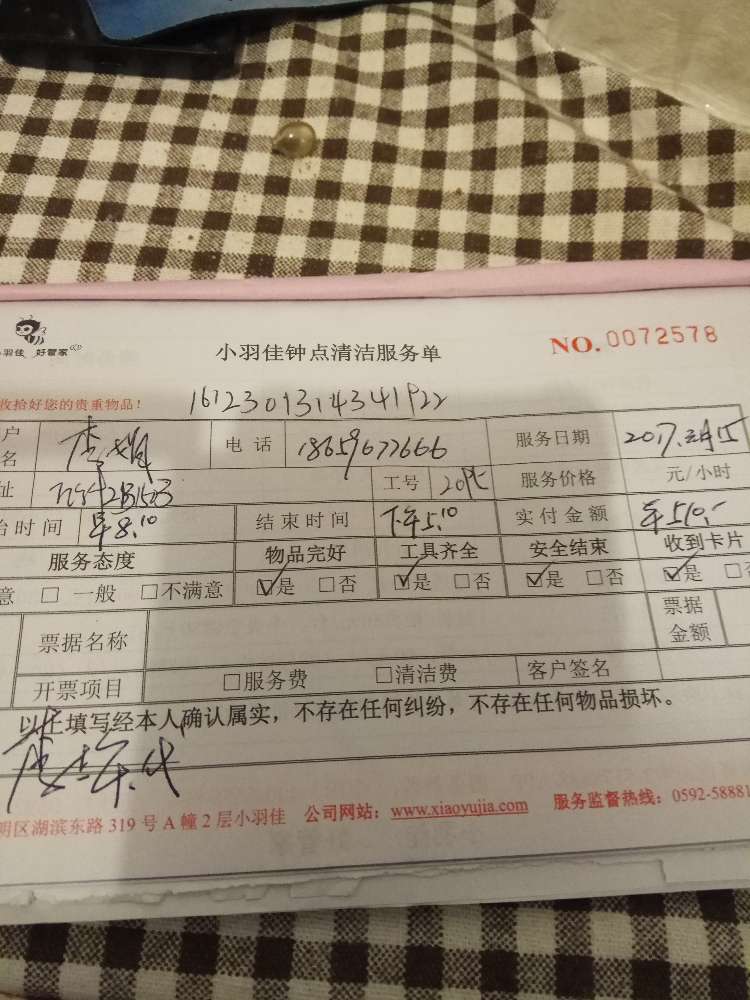 小羽佳 好管家
小羽佳钟点清洁服务单
NO.0072578
收拾好您的贵重物品!
户名 电话 18659677666 服务日期 2017
址 工号 服务价格 元/小时
始时间 早8:10 结束时间 下午5:10 实付金额
服务态度 物品完好 工具齐全 安全结束 收到卡片
意 □ 一般 □不满意 ☑是 □否 ☑是 □否 ☑是 □否 ☑是 □否
票据名称 票据金额
开票项目 □服务费 □清洁费 客户签名
以上填写经本人确认属实，不存在任何纠纷，不存在任何物品损坏。
明区湖滨东路 319 号 A 幢 2 层小羽佳 公司网站：www.xiaoyujia.com 服务监督热线：0592-58881